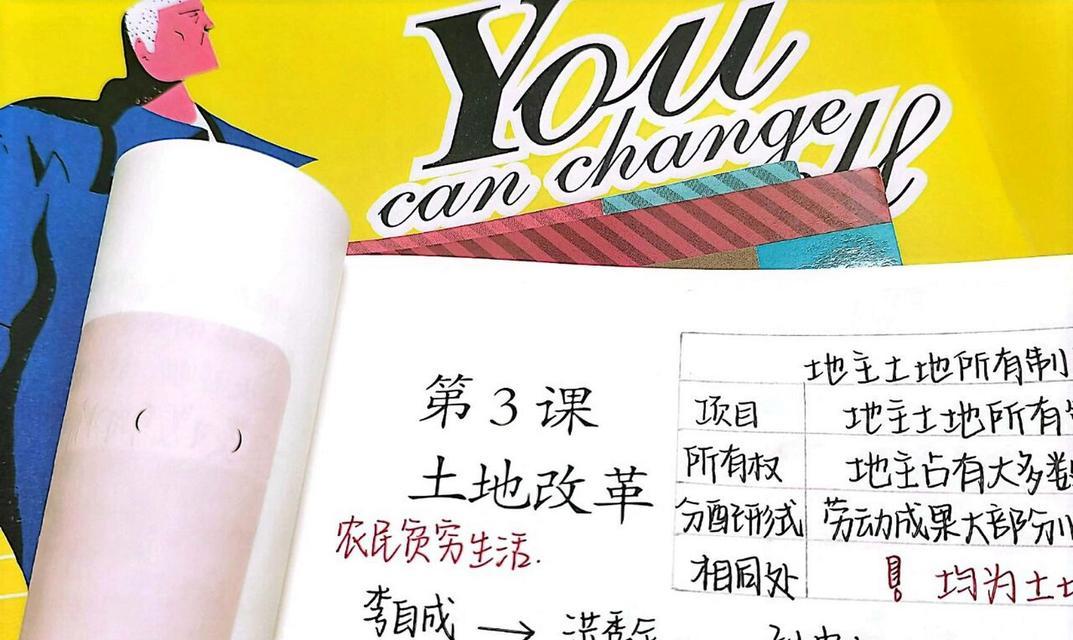 You
can change
第3课
土地改革
农民贫穷生活.
李自成 → 洪秀全
地主土地所有制
项目 地主土地所有
所有权 地主占有大多数
分配形式 劳动成果大部分
相同处 ! 均为土地